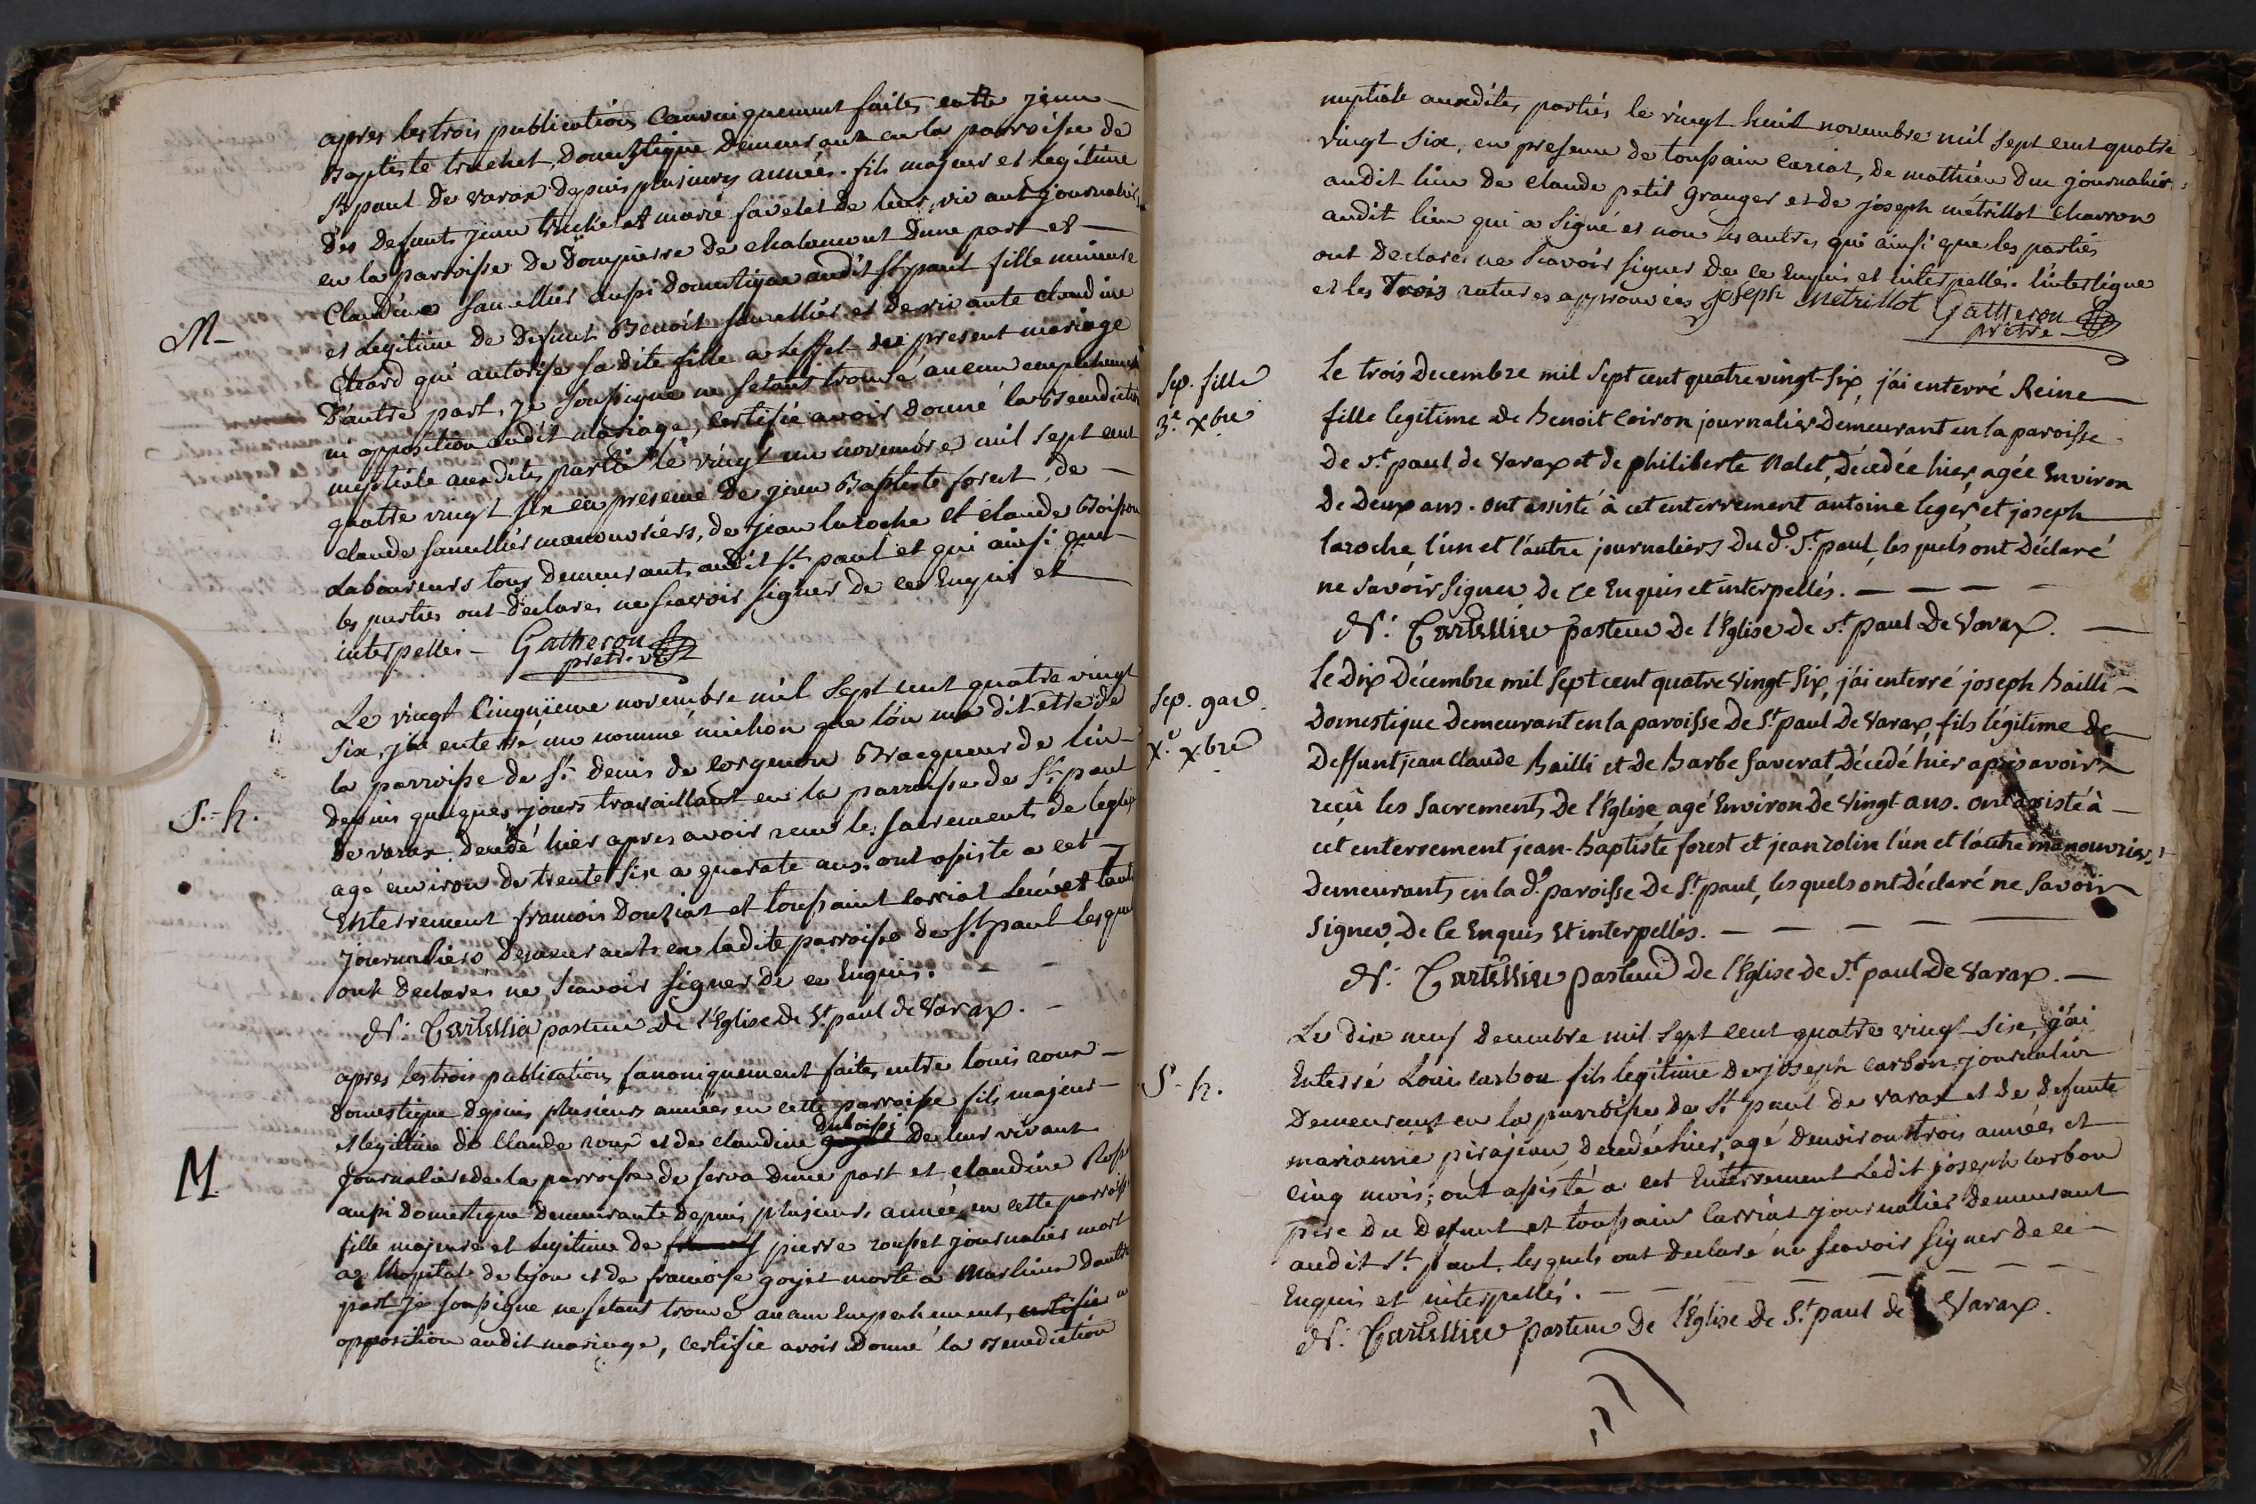 apres les trois publications Canoniquement faites entre jean
Baptiste truchet Domestique demeurant en la parroisse de
St paul de varax depuis plusieurs années. fils majeur et Legitime
des defunts jean truchet et marie favelet de leur vivant journaliers
en la parroisse de Dompierre de chalamont Dune part et
Claudine Sauellier aussi domestique audit St paul fille mineure
M
et Legitime de defunt Benoit Sauellier et de vivante claudine
Cleard qui autorise sa dite fille a leffet du present mariage
D'autre part, je soussigné ne setant trouvé aucun empechement
ni opposition audit mariage, certifie avoir donné la Benediction
nuptiale auxdites parties le vingt un novembre mil sept cent
quatre vingt six en presence de jean Baptiste forest, de
claude Sauellier manouvriers, de jean laroche et claude Boisson
Laboureurs tous demeurants audit St. paul et qui ainsi que
les parties ont declarés ne scavoir signer de ce Enquis et
interpellés - Gatheron
pretre vic
Le vingt Cinquieme novembre mil Sept cent quatre vingt
six, jai enterré un nommé michon que l'on ma dit etre de
la parroisse de St. denis de Corgenon Bracqueur de lin
depuis quelques jours travaillant en la parroisse de St. paul
S.-h.
de varax. decedé hier apres avoir recu les Sacrements de leglise
agé environ de trente six a quarate ans. ont assiste a cet
Enterrement francois Douziat et toussaint carriat
journaliers demeurants en ladite parroisse de St. paul lesquels
ont declarés ne scavoir signer de ce Enquis.
N. Cartellier pasteur de l'Eglise de St. paul de Varax.
apres les trois publications Canoniquement faites entre louis roux
domestique depuis plusieurs années en cette parroisse fils majeur
duboissi
et legitime de Claude roux et de claudine goyet de leur vivant
M
journaliers de la parroisse de serva dune part et claudine
aussi domestique demeurante depuis plusieurs années en cette parroisse
fille majeure et Legitime de pierre rousset journalier mort
a lhopital de lyon et de francoise goyet morte a Marlieux dautre
part je soussigné ne setant trouvé aucun Empechement, certifie
opposition audit mariage, certifie avoir Donné la Benediction
nuptiale auxdites parties le vingt huit novembre mil sept cent quatre
vingt six, en presence de toussain cariat, de mathieu duc journalier
audit lieu de claude petit granger et de joseph metrillot charron
audit lieu qui a signé et non les autres qui ainsi que les parties
ont declarés ne scavoir signer de ce Enquis et interpellés. linterligne
et les Trois ratures approuvées joseph metrillot Gatheron
prêtre
Sep. fille
3.e Xbre
Le trois Decembre mil Sept cent quatre vingt-Six, j'ai enterré Reine
fille legitime de benoit Coiron journalier Demeurant en la paroisse
de St. paul de Varax et de philiberte Nalet, décedée hier, agée Environ
de deux ans. ont assisté à cet enterrement antoine leger et joseph
laroche l'un et l'autre journaliers du d. St. paul, les quels ont Déclaré
ne savoir Signer de Ce Enquis et interpellés.
N. Cartellier pasteur De l'Eglise de St. paul De Varax.
Sep. gar.
X.e Xbre
Le Dix Décembre mil Sept cent quatre Vingt Six, j'ai enterré joseph bailli
Domestique Demeurant en la paroisse De St. paul De Varax, fils légitime de
Deffunt jean claude bailli et de barbe Saverat, Décedé hier après avoir
reçû les Sacrements De l'Eglise agé Environ De Vingt ans. ont assisté à
cet enterrement jean-baptiste forest et jean colin l'un et l'autre manouvriers
Demeurants en la d. paroisse De St. paul, les quels ont Déclaré ne Savoir
Signer, De Ce Enquis et interpellés.
N. Cartellier pasteur De l'Eglise de St. paul de Varax.
S-h.
Le dix neuf decembre mil Sept cent quatre vingt Six, j'ai
Enterré Louis carbon fils légitime de joseph carbon journalier
Demeurant en la parroisse de St paul de varax et de defunte
marianne pirajean, decedé hier, agé d'environ trois années et
cinq mois; ont assisté a cet Enterrement Ledit joseph carbon
pere du defunt et toussain Carriat journalier demeurant
audit St. paul. lesquels ont declaré ne scavoir signer de ce
Enquis et interpellés.
N. Cartellier pasteur De l'Eglise de St. paul de Varax.